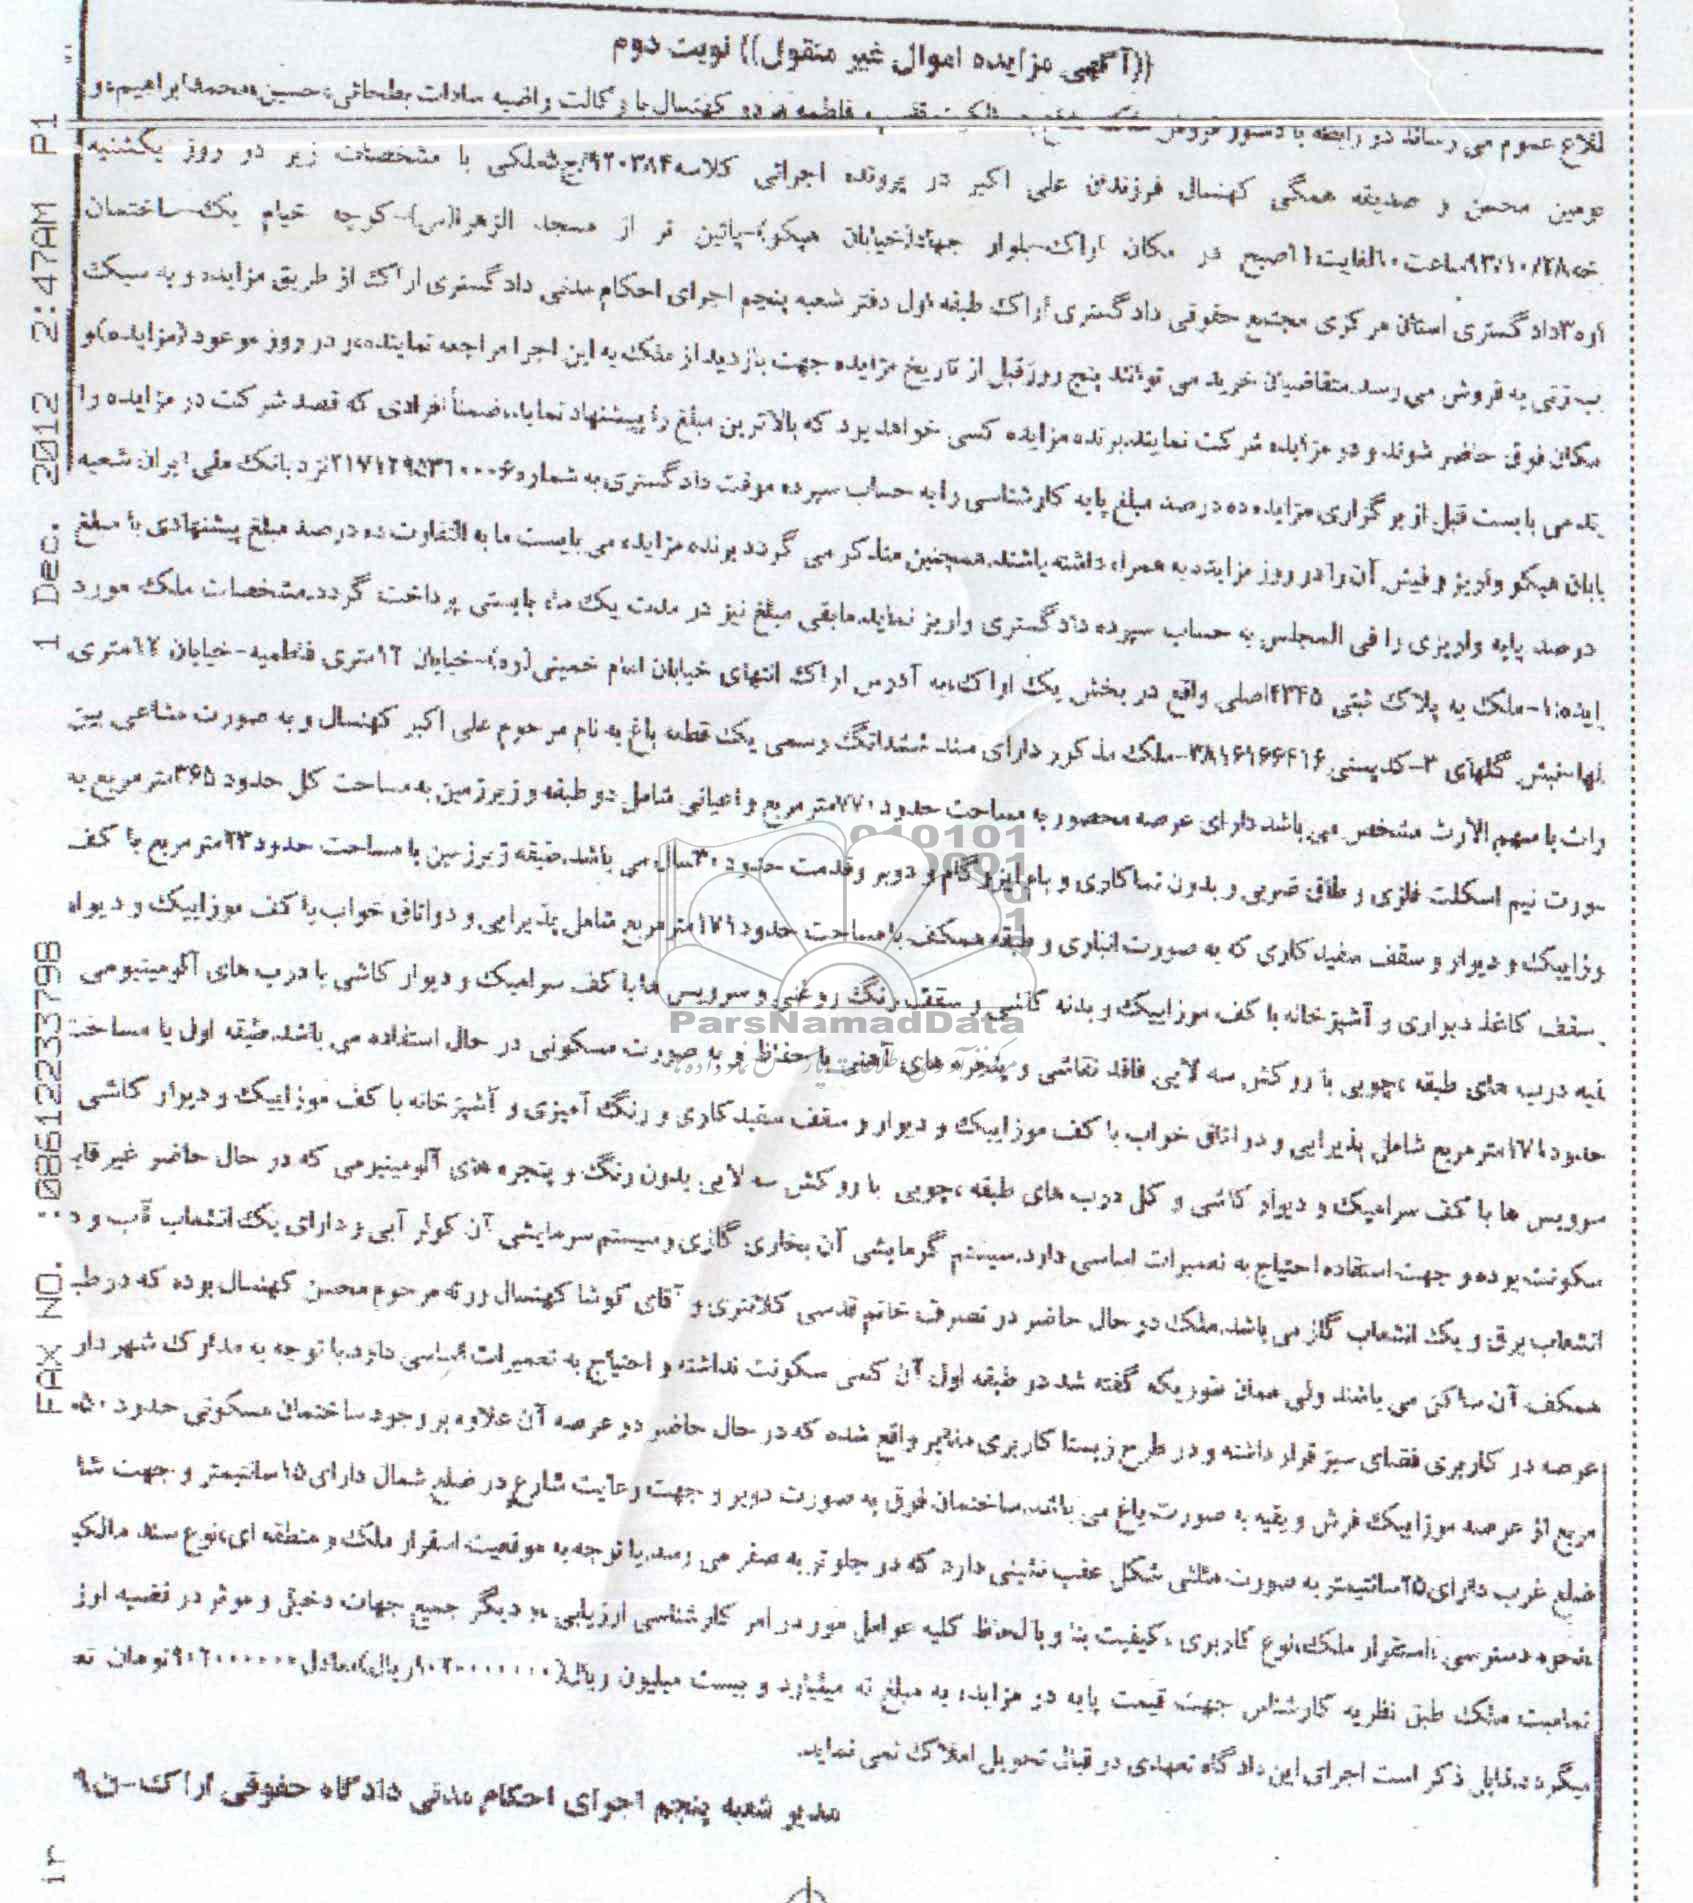 ((آگهی مزایده اموال غیر منقول)) نوبت دوم
فاطمه هر دو کهنسال با وکالت راضیه سادات بطحائی، حسین، محمد، ابراهیم، و
اطلاع عموم می رساند در رابطه با دستور فروش
محسن و صدیقه همگی کهنسال فرزندان علی اکبر در پرونده اجرائی کلاسه ۹۲۰۳۸۴/ج۵ ملکی با مشخصات زیر در روز یکشنبه
۹۳/۱۰/۲۸ ساعت ۱۰ لغایت ۱۱ صبح در مکان اراک-بلوار جهاد(خیابان هپکو)-پائین تر از مسجد الزهرا(س)-کوچه خیام یک-ساختمان
دادگستری استان مرکزی مجتمع حقوقی دادگستری اراک طبقه اول دفتر شعبه پنجم اجرای احکام مدنی دادگستری اراک از طریق مزایده و به سبک
به فروش می رسد.متقاضیان خرید می توانند پنج روز قبل از تاریخ مزایده جهت بازدید از ملک به این اجرا مراجعه نمایند،و در روز موعود (مزایده)و
مکان فوق حاضر شوند و در مزایده شرکت نمایند.برنده مزایده کسی خواهد بود که بالاترین مبلغ را پیشنهاد نماید،ضمناً افرادی که قصد شرکت در مزایده را
می بایست قبل از برگزاری مزایده ده درصد مبلغ پایه کارشناسی را به حساب سپرده موقت دادگستری به شماره ۲۱۷۱۲۹۵۳۱۰۰۰۶ نزد بانک ملی ایران شعبه
هپکو واریز و فیش آن را در روز مزایده به همراه داشته باشند.همچنین متذکر می گردد برنده مزایده می بایست ما به التفاوت ده درصد مبلغ پیشنهادی با مبلغ
درصد پایه واریزی را فی المجلس به حساب سپرده دادگستری واریز نماید.مابقی مبلغ نیز در مدت یک ماه بایستی پرداخت گردد.مشخصات ملک مورد
۱-ملک به پلاک ثبتی ۴۳۴۵ اصلی واقع در بخش یک اراک،به آدرس اراک انتهای خیابان امام خمینی(ره)-خیابان ۱۲ متری فاطمیه-خیابان ۱۲ متری
نبش گلهای ۳-کدپستی ۳۸۱۶۱۶۶۴۱۶-ملک مذکور دارای سند ششدانگ رسمی یک قطعه باغ به نام مرحوم علی اکبر کهنسال و به صورت مشاعی بین
با سهم الارث مشخص می باشد دارای عرصه محصور به مساحت حدود ۷۷۰ متر مربع و اعیانی شامل دو طبقه و زیرزمین به مساحت کل حدود ۳۶۵ متر مربع به
صورت نیم اسکلت فلزی و طاق ضربی و بدون نماکاری و بام ایزوگام و دوبر و قدمت حدود ۳۰ سال می باشد.طبقه زیرزمین با مساحت حدود ۲۳ متر مربع با کف
و دیوار و سقف سفید کاری که به صورت انباری و طبقه همکف با مساحت حدود ۱۷۱ متر مربع شامل پذیرایی و دو اتاق خواب با کف موزاییک و دیوار
سقف کاغذ دیواری و آشپزخانه با کف موزاییک و بدنه کاشی و سقف رنگ روغنی و سرویس ها با کف سرامیک و دیوار کاشی با درب های آلومینیومی
درب های طبقه ،چوبی با روکش سه لایی فاقد نقاشی و پنجره های آهنی با حفاظ و به صورت مسکونی در حال استفاده می باشد.طبقه اول با مساحت
حدود ۱۷۱ متر مربع شامل پذیرایی و دو اتاق خواب با کف موزاییک و دیوار و سقف سفید کاری و رنگ آمیزی و آشپزخانه با کف موزاییک و دیوار کاشی
سرویس ها با کف سرامیک و دیوار کاشی و کل درب های طبقه ،چوبی با روکش سه لایی بدون رنگ و پنجره های آلومینیومی که در حال حاضر غیر قابل
سکونت بوده و جهت استفاده احتیاج به تعمیرات اساسی دارد.سیستم گرمایشی آن بخاری گازی و سیستم سرمایشی آن کولر آبی و دارای یک انشعاب آب و د
انشعاب برق و یک انشعاب گاز می باشد.ملک در حال حاضر در تصرف خانم قدسی کلانتری و آقای کوشا کهنسال ورثه مرحوم محسن کهنسال بوده که در طبـ
همکف آن ساکن می باشند ولی همان طوریکه گفته شد در طبقه اول آن کسی سکونت نداشته و احتیاج به تعمیرات اساسی دارد.با توجه به مدارک شهردار
عرصه در کاربری فضای سبز قرار داشته و در طرح زیستا کاربری متغیر واقع شده که در حال حاضر در عرصه آن علاوه بر وجود ساختمان مسکونی حدود ۵۰
مربع از عرصه موزاییک فرش و بقیه به صورت باغ می باشد.ساختمان فوق به صورت دوبر و جهت رعایت شارع در ضلع شمال دارای ۱۵ سانتیمتر و جهت شا
ضلع غرب دارای ۲۵ سانتیمتر به صورت مثلثی شکل عقب نشینی دارد که در جلوتر به صفر می رسد.با توجه به موقعیت استقرار ملک و منطقه ای،نوع سند مالکیـ
،نحوه دسترسی ،استقرار ملک،نوع کاربری ،کیفیت بنا و با لحاظ کلیه عوامل موثر در امر کارشناسی ارزیابی ،و دیگر جمیع جهات دخیل و موثر در قضیه ارز
تمامیت ملک طبق نظریه کارشناس جهت قیمت پایه در مزایده به مبلغ نه میلیارد و بیست میلیون ریال( ریال)،معادل ۹۰۲۰۰۰۰۰۰ تومان تعـ
میگردد.قابل ذکر است اجرای این دادگاه تعهدی در قبال تحویل املاک نمی نماید.
مدیر شعبه پنجم اجرای احکام مدنی دادگاه حقوقی اراک-ن۹
010101
0001
01
1
ParsNamadData
FAX NO. :08612233798 1 Dec. 2012 2:47AM P1
ir